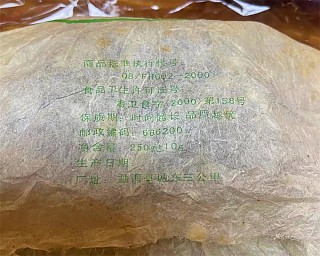 商品标准执行代号:
QB/FH002-2000
食品卫生许可证号:
有卫食字(2000)第158号
保质期: 时间越长 品质越优
邮政编码: 666200
净含量: 250g±10g
生产日期
厂址: 勐海县城东三公里